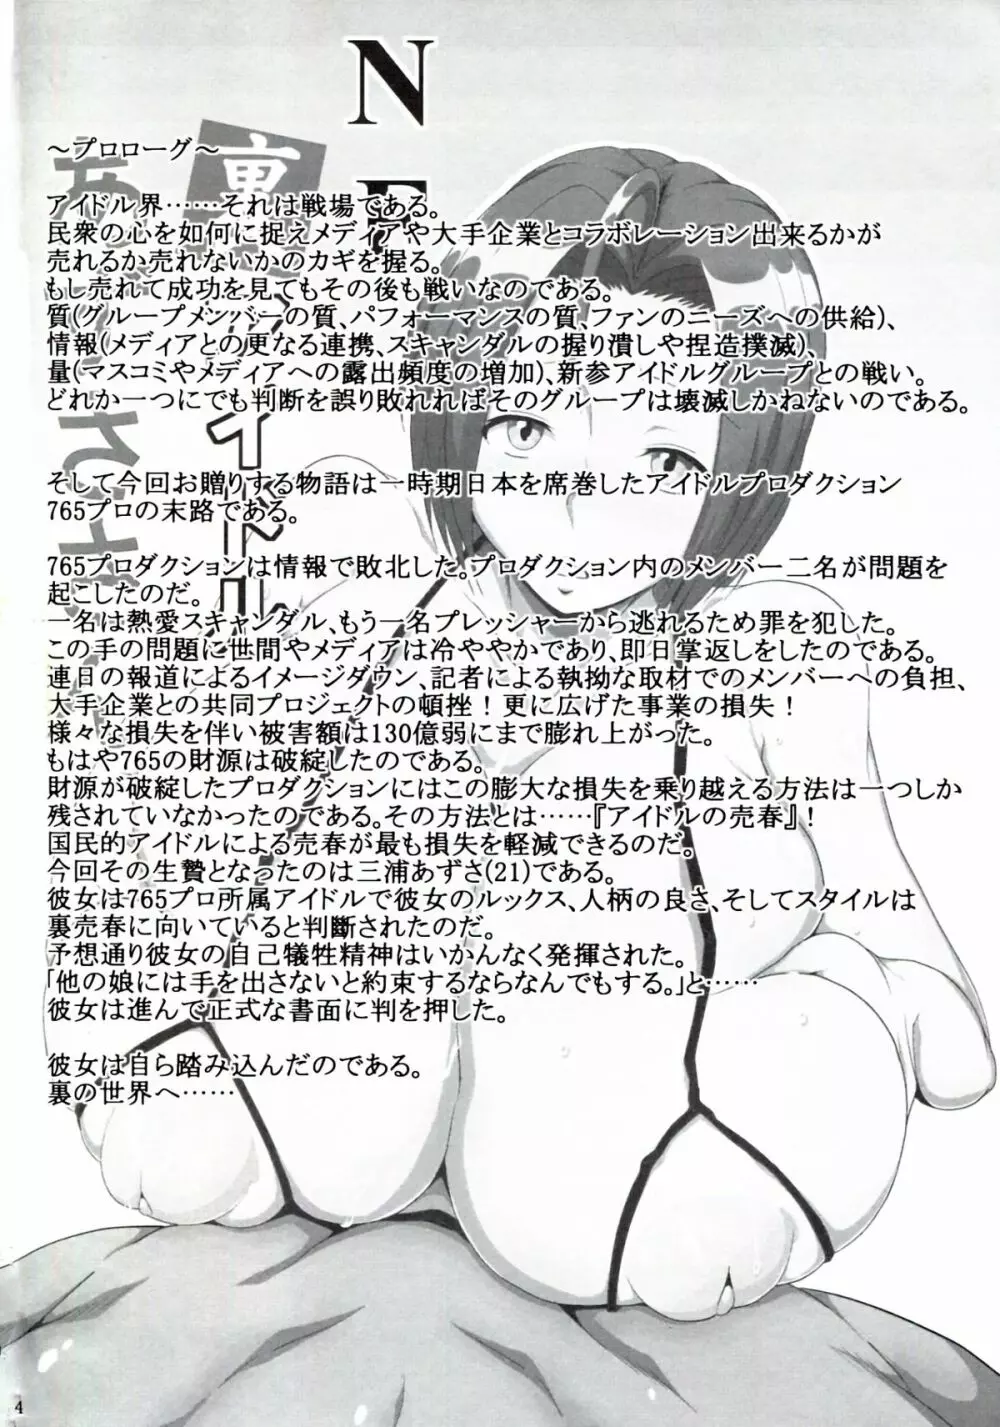 N
～プロローグ～
アイドル界……それは戦場である。
民衆の心を如何に捉えメディアや大手企業とコラボレーション出来るかが
売れるか売れないかのカギを握る。
もし売れて成功を見てもその後も戦いなのである。
質(グループメンバーの質、パフォーマンスの質、ファンのニーズへの供給)、
情報(メディアとの更なる連携、スキャンダルの握り潰しや捏造撲滅)、
量(マスコミやメディアへの露出頻度の増加)、新参アイドルグループとの戦い。
どれか一つにでも判断を誤り敗れればそのグループは壊滅しかねないのである。
そして今回お贈りする物語は一時期日本を席巻したアイドルプロダクション
765プロの末路である。
765プロダクションは情報で敗北した。プロダクション内のメンバー二名が問題を
起こしたのだ。
一名は熱愛スキャンダル、もう一名プレッシャーから逃れるため罪を犯した。
この手の問題に世間やメディアは冷ややかであり、即日掌返しをしたのである。
連日の報道によるイメージダウン、記者による執拗な取材でのメンバーへの負担、
大手企業との共同プロジェクトの頓挫！更に広げた事業の損失！
様々な損失を伴い被害額は130億弱にまで膨れ上がった。
もはや765の財源は破綻したのである。
財源が破綻したプロダクションにはこの膨大な損失を乗り越える方法は一つしか
残されていなかったのである。その方法とは……『アイドルの売春』！
国民的アイドルによる売春が最も損失を軽減できるのだ。
今回その生贄となったのは三浦あずさ(21)である。
彼女は765プロ所属アイドルで彼女のルックス、人柄の良さ、そしてスタイルは
裏売春に向いていると判断されたのだ。
予想通り彼女の自己犠牲精神はいかんなく発揮された。
「他の娘には手を出さないと約束するならなんでもする。」と……
彼女は進んで正式な書面に判を押した。
彼女は自ら踏み込んだのである。
裏の世界へ……
4